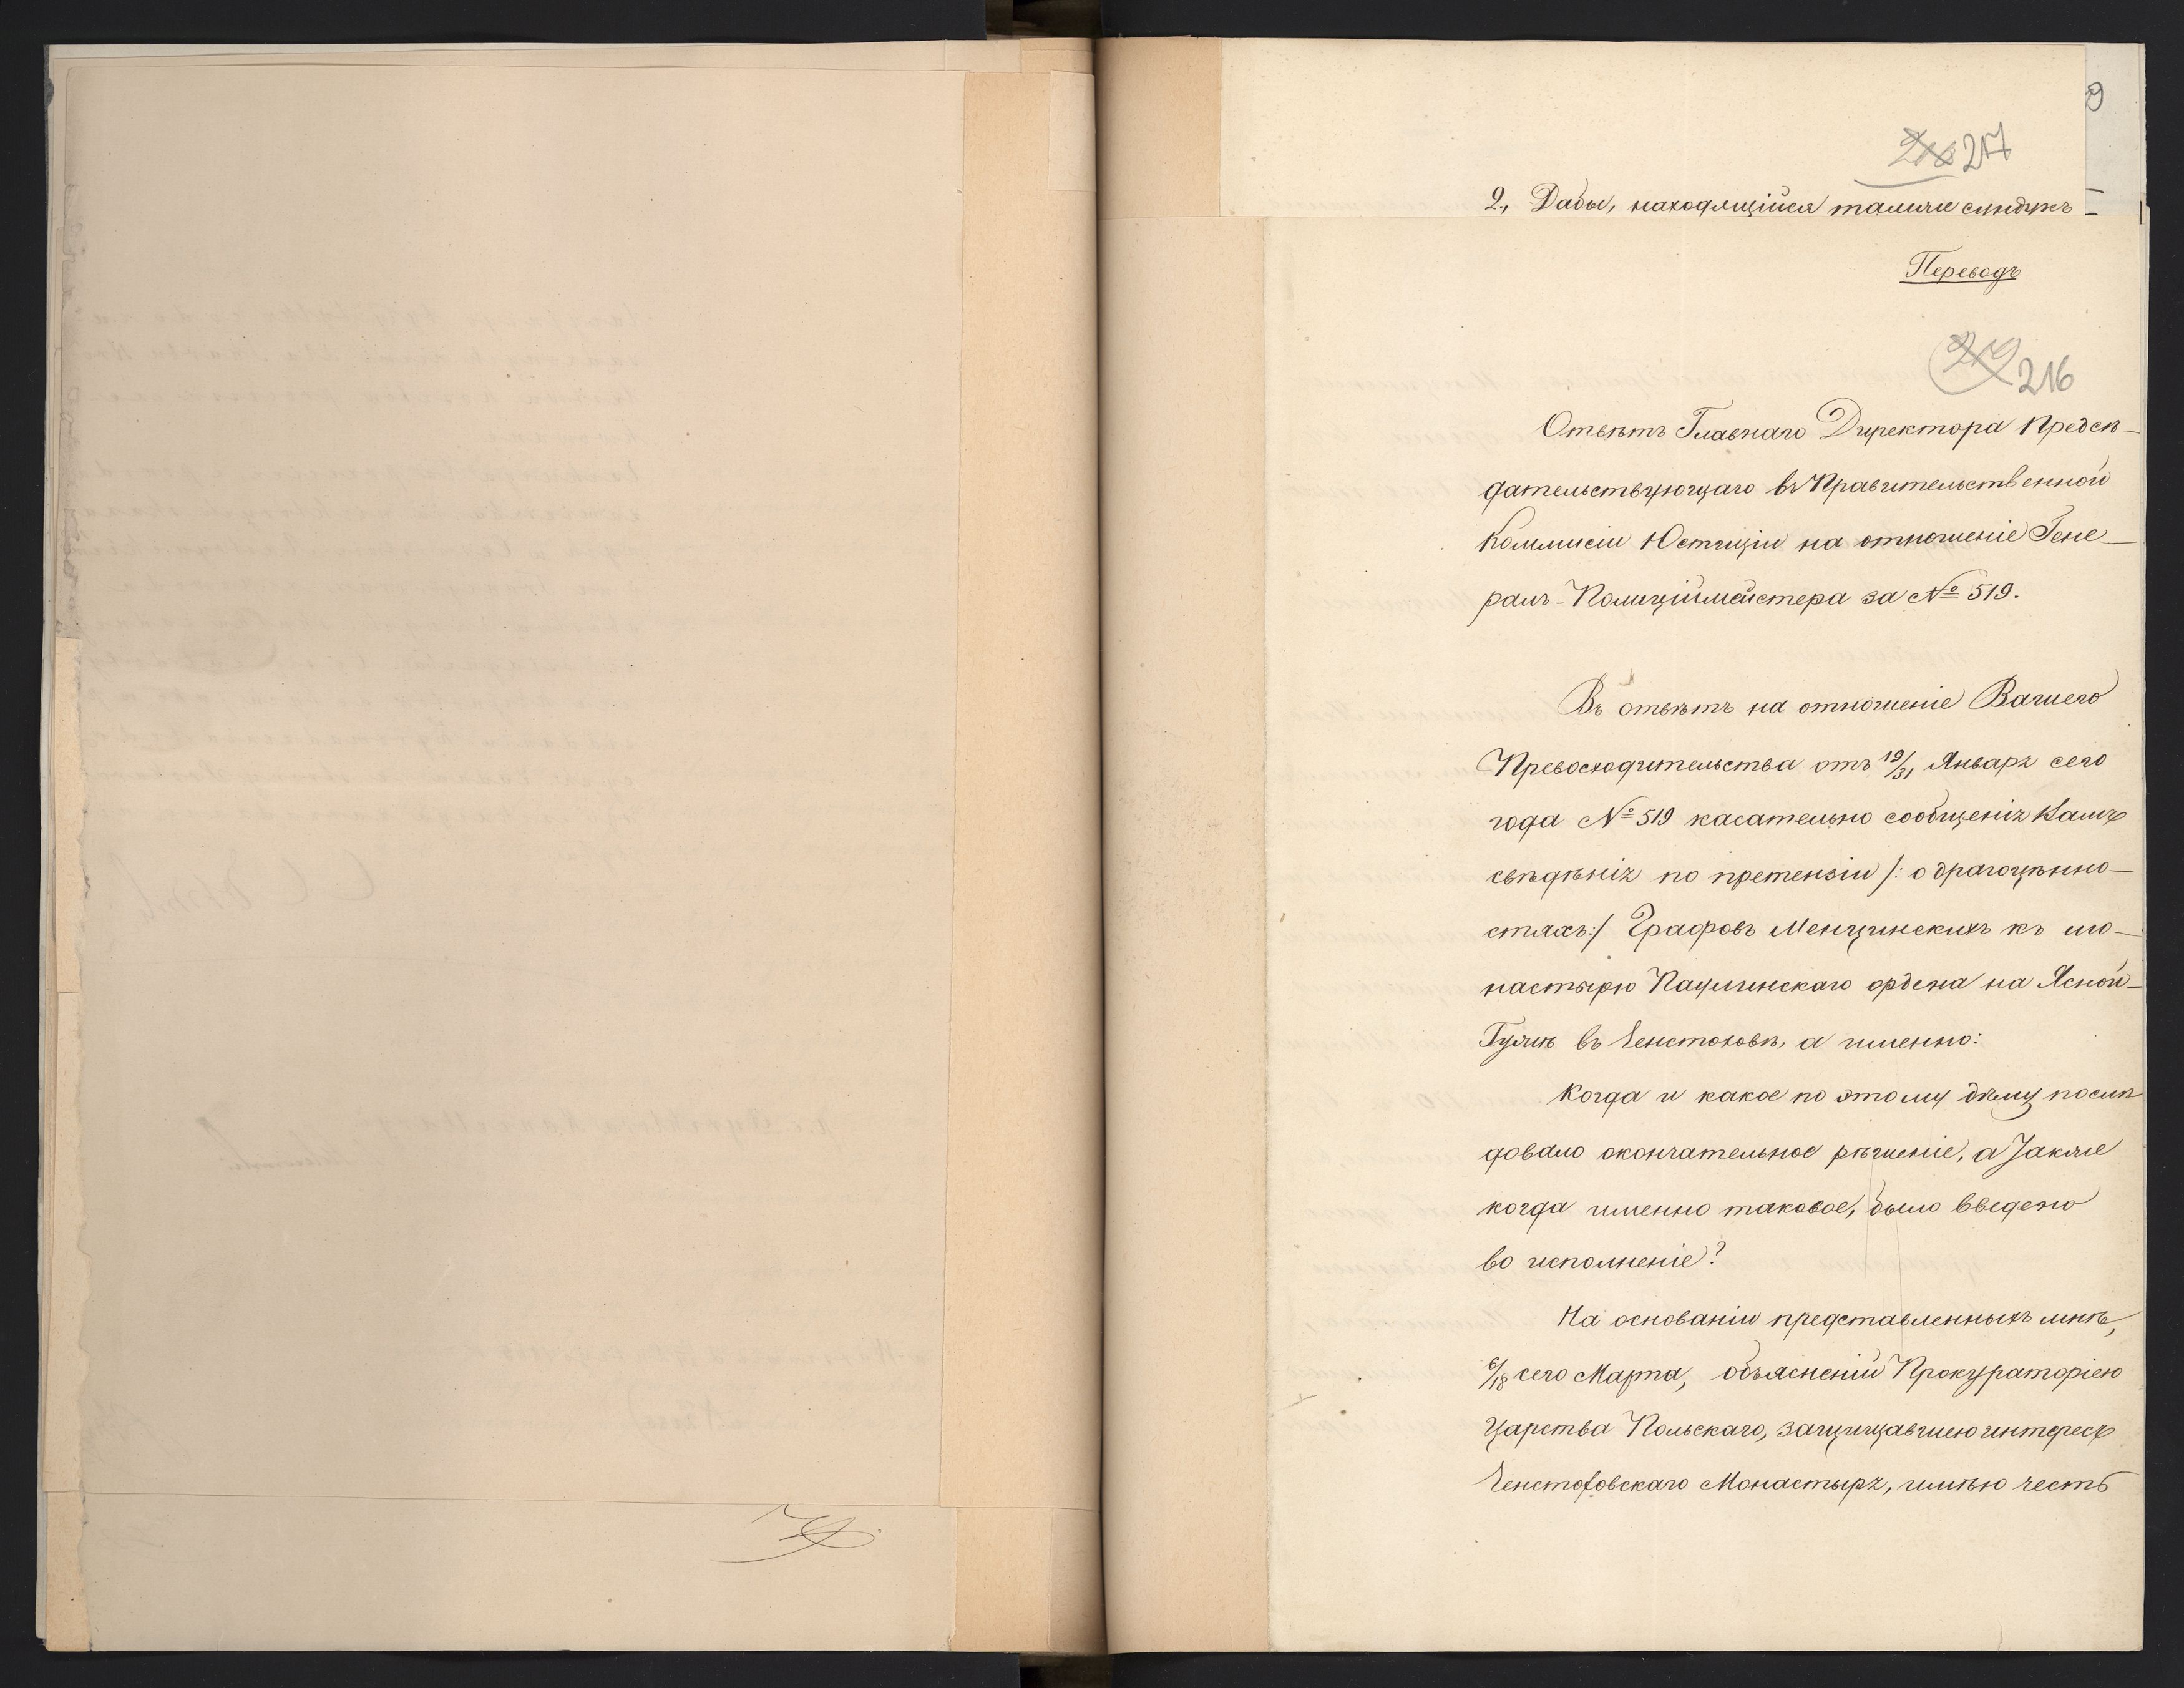 9
218 217
2., Дабы, находящійся тамже сундукъ
Переводъ
219 216
Отвѣтъ Главнаго Директора Предсѣ-
дательствующаго въ Правительственной
Коммисіи Юстиціи на отношеніе Гене-
ралъ-Полиціймейстера за № 519.
Въ отвѣтъ на отношеніе Вашего
Превосходительства отъ 19/31 Января сего
года № 519 касательно сообщенія Вамъ
свѣдѣнія по претензіи /: о драгоцѣнно-
стяхъ:/ Графовъ Менцинскихъ къ мо-
настырю Паулинскаго ордена на Ясной-
Гурѣ въ Ченстоховѣ, а именно:
Когда и какое по этому дѣлу послѣ
довало окончательное рѣшеніе, а также
когда именно таковое, было введено
во исполненіе?
На основаніи представленныхъ мнѣ,
6/18 сего Марта, объясненій Прокураторіею
Царства Польскаго, защищавшею интересъ
Ченстоховскаго Монастыря, имѣю честь